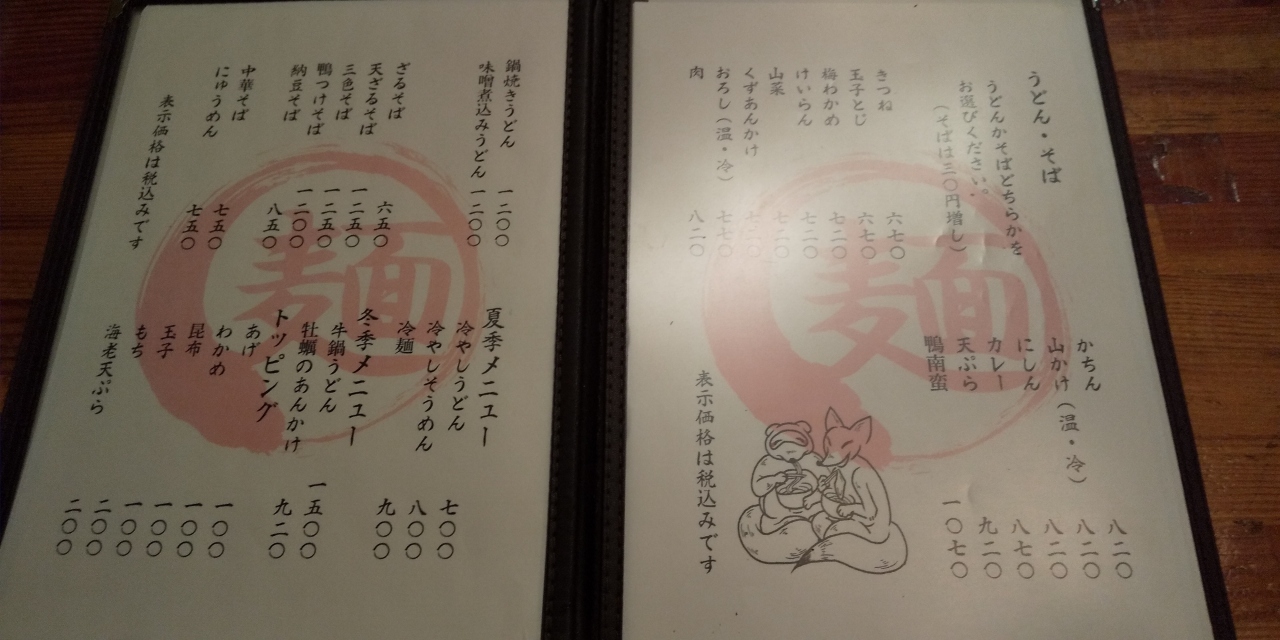 うどん・そば
うどんかそばどちらかを
お選びください。
(そばは三〇円増し)
きつね 六七〇
玉子とじ 六七〇
梅わかめ 七二〇
けいらん 七二〇
山菜 七二〇
くずあんかけ
おろし(温・冷) 七七〇
肉 八二〇
かちん 八二〇
山かけ(温・冷) 八二〇
にしん 八二〇
カレー 八七〇
天ぷら 九二〇
鴨南蛮 一〇七〇
表示価格は税込みです
麺
鍋焼きうどん 一二〇〇
味噌煮込みうどん 一二〇〇
ざるそば 六五〇
天ざるそば 一二五〇
三色そば 一二五〇
鴨つけそば 一二〇〇
納豆そば 八五〇
中華そば 七五〇
にゅうめん 七五〇
表示価格は税込みです
夏季メニュー
冷やしうどん 七〇〇
冷やしそうめん 八〇〇
冷麺 九〇〇
冬季メニュー
牛鍋うどん 一五〇〇
牡蠣のあんかけ 九二〇
トッピング
あげ 一〇〇
わかめ 一〇〇
昆布 一〇〇
玉子 一〇〇
もち 二〇〇
海老天ぷら 二〇〇
麺